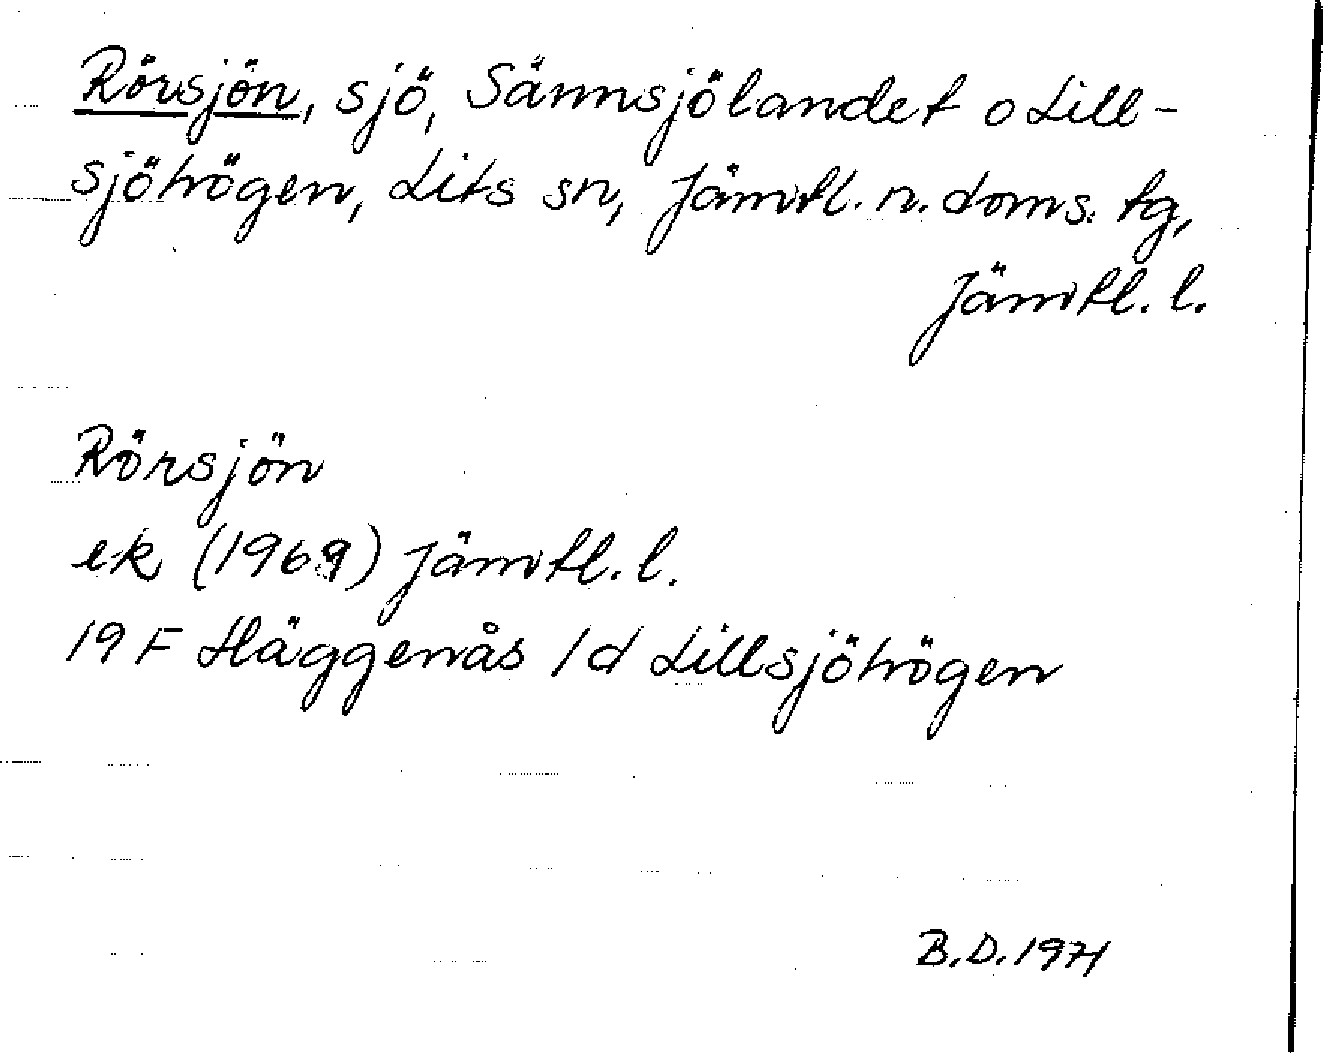 Rörsjön, sjö, Sännsjölandet o Lill-
sjöhögen, Lits sn, Jämtl. n. doms. tg,
Jämtl. l.
Rörsjön
ek (1969) Jämtl. l.
19 F Häggenås 1d Lillsjöhögen
B.D. 1971